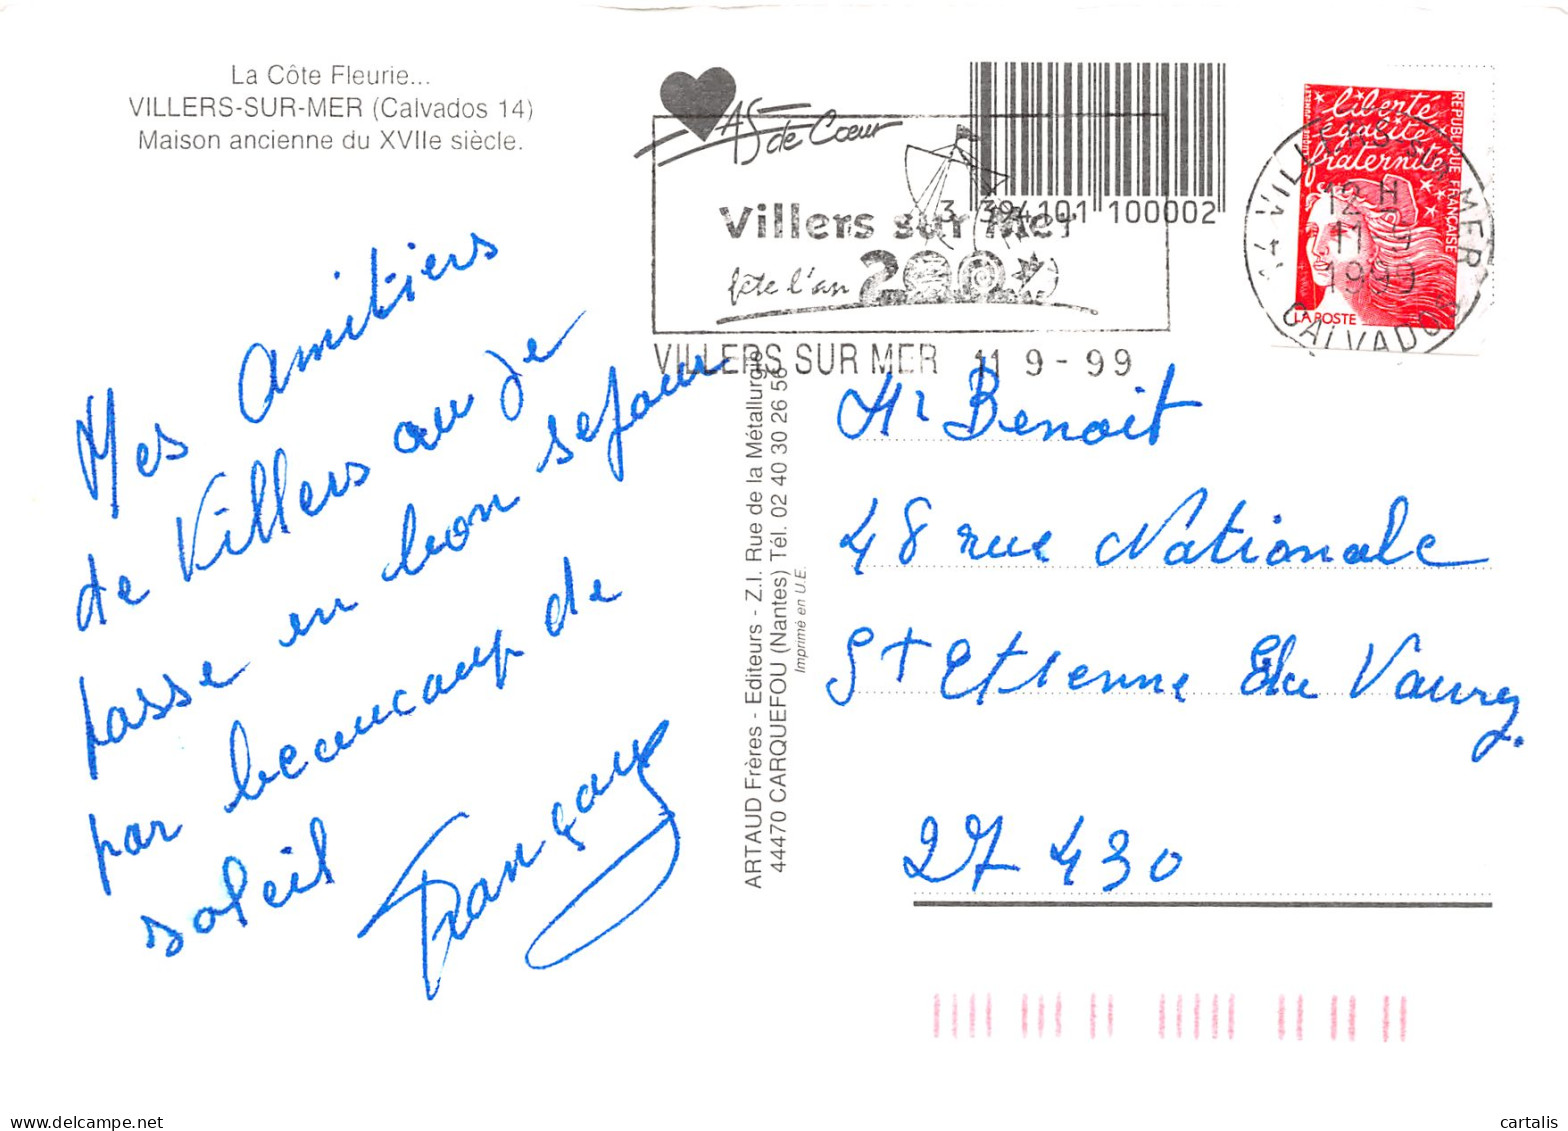 La Côte Fleurie...
VILLERS-SUR-MER (Calvados 14)
Maison ancienne du XVIIe siècle.
Mes amitiers
de Villers ou je
passe un bon sejour
par beaucoup de
soleil
AS de Cœur
Villers sur Mer
fête l'an 2000
VILLERS SUR MER 11 9 - 99
3 394101 100002
liberté
égalité
fraternité
REPUBLIQUE FRANÇAISE
LA POSTE
14 VILLERS SUR MER
12 H
11-9
1999
CALVADOS
ARTAUD Frères - Editeurs - Z.I. Rue de la Métallurgie
44470 CARQUEFOU (Nantes) Tél. 02 40 30 26 56
Imprimé en U.E.
Mr Benoit
48 rue Nationale
St Etienne du Vauvray.
27 430